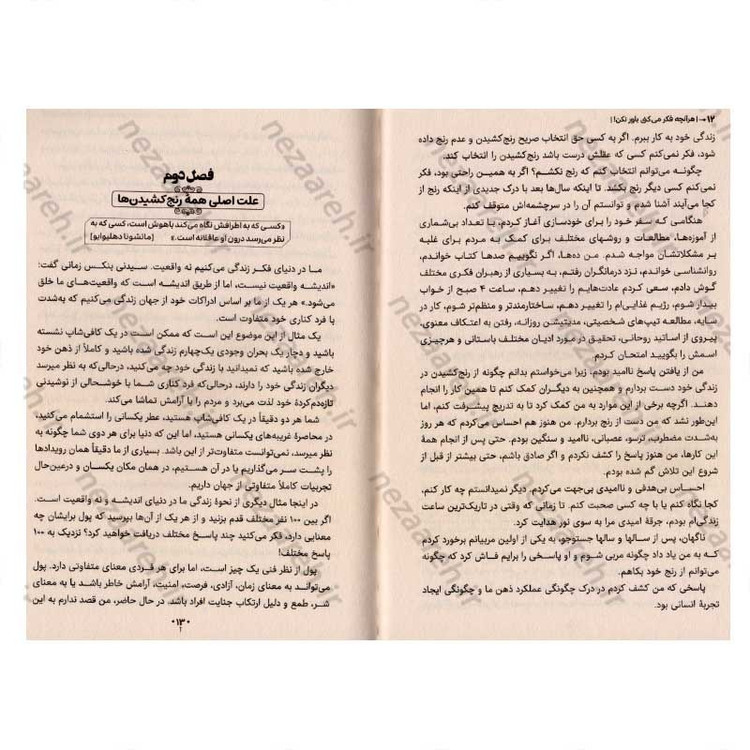 ۱۲ • | هرآنچه فکر می‌کنی باور نکن! |
زندگی خود به کار ببرم. اگر به کسی حق انتخاب صریح رنج‌کشیدن و عدم رنج داده
شود، فکر نمی‌کنم کسی که عقلش درست باشد رنج‌کشیدن را انتخاب کند.
چگونه می‌توانم انتخاب کنم که رنج نکشم؟ اگر به همین راحتی بود، فکر
نمی‌کنم کسی دیگر رنج بکشد. تا اینکه سال‌ها بعد با درک جدیدی از اینکه رنج از
کجا می‌آید آشنا شدم و توانستم آن را در سرچشمه‌اش متوقف کنم.
هنگامی که سفر خود را برای خودسازی آغاز کردم، با تعداد بی‌شماری
از آموزه‌ها، مطالعات و روشهای مختلف برای کمک به مردم برای غلبه
بر مشکلاتشان مواجه شدم. من ده‌ها، اگر نگوییم صدها کتاب خواندم،
روانشناسی خواندم، نزد درمانگران رفتم، به بسیاری از رهبران فکری مختلف
گوش دادم، سعی کردم عادت‌هایم را تغییر دهم، ساعت ۴ صبح از خواب
بیدار شوم، رژیم غذایی‌ام را تغییر دهم، ساختارمندتر و منظم‌تر شوم، کار در
سایه، مطالعه تیپ‌های شخصیتی، مدیتیشن روزانه، رفتن به اعتکاف معنوی،
پیروی از اساتید روحانی، تحقیق در مورد ادیان مختلف باستانی و هرچیزی
اسمش را بگویید امتحان کردم.
من از یافتن پاسخ ناامید بودم. زیرا می‌خواستم بدانم چگونه از رنج‌کشیدن در
زندگی خود دست بردارم و همچنین به دیگران کمک کنم تا همین کار را انجام
دهند. اگرچه برخی از این موارد به من کمک کرد تا به تدریج پیشرفت کنم، اما
این‌طور نشد که من دست از رنج بردارم. من هنوز هم احساس می‌کردم که هر روز
به‌شدت مضطرب، ترسو، عصبانی، ناامید و سنگین بودم. حتی پس از انجام همهٔ
این کارها، من هنوز پاسخ را کشف نکردم و اگر صادق باشم، حتی بیشتر از قبل از
شروع این تلاش گم شده بودم.
احساس بی‌هدفی و ناامیدی بی‌جهت می‌کردم. دیگر نمیدانستم چه کار کنم،
کجا نگاه کنم یا با چه کسی صحبت کنم. تا زمانی که وقتی در تاریک‌ترین ساعت
زندگی‌ام بودم، جرقهٔ امیدی مرا به سوی نور هدایت کرد.
ناگهان، پس از سالها و سالها جستوجو، به یکی از اولین مربیانم برخورد کردم
که به من یاد داد چگونه مربی شوم و او پاسخی را برایم فاش کرد که چگونه
می‌توانم از رنج خود بکاهم.
پاسخی که من کشف کردم در درک چگونگی عملکرد ذهن ما و چگونگی ایجاد
تجربهٔ انسانی بود.
فصل دوم
علت اصلی همهٔ رنج‌کشیدن‌ها
«کسی که به اطرافش نگاه می‌کند باهوش است، کسی که به
نظر می‌رسد درون او عاقلانه است.» [ماتشونا دهلیوایو]
ما در دنیای فکر زندگی می‌کنیم نه واقعیت. سیدنی بنکس زمانی گفت:
«اندیشه واقعیت نیست، اما از طریق اندیشه است که واقعیت‌های ما خلق
می‌شود.» هر یک از ما بر اساس ادراکات خود از جهان زندگی می‌کنیم که به‌شدت
با فرد کناری خود متفاوت است.
یک مثال از این موضوع این است که ممکن است در یک کافی‌شاپ نشسته
باشید و دچار یک بحران وجودی یک‌چهارم زندگی شده باشید و کاملاً از ذهن خود
خارج شده باشید که نمیدانید با زندگی خود چه می‌کنید، درحالی‌که به نظر میرسد
دیگران زندگی خود را دارند، درحالی‌که فرد کناری شما با خوشحالی از نوشیدنی
تازه‌دم‌کردهٔ خود لذت می‌برد و مردم را با آرامش تماشا می‌کند.
شما هر دو دقیقاً در یک کافی‌شاپ هستید، عطر یکسانی را استشمام می‌کنید،
در محاصرهٔ غریبه‌های یکسانی هستید، اما این که دنیا برای هر دوی شما چگونه به
نظر میرسد، نمی‌توانست متفاوت‌تر از این باشد. بسیاری از ما دقیقاً همان رویدادها
را پشت سر می‌گذاریم یا در آن هستیم، در همان مکان یکسان و درعین‌حال
تجربیات کاملاً متفاوتی از جهان داریم.
در اینجا مثال دیگری از نحوهٔ زندگی ما در دنیای اندیشه و نه واقعیت است.
اگر بین ۱۰۰ نفر مختلف قدم بزنید و از هر یک از آن‌ها بپرسید که پول برایشان چه
معنایی دارد، فکر می‌کنید چند پاسخ مختلف دریافت خواهید کرد؟ نزدیک به ۱۰۰
پاسخ مختلف!
پول از نظر فنی یک چیز است، اما برای هر فردی معنای متفاوتی دارد. پول
می‌تواند به معنای زمان، آزادی، فرصت، امنیت، آرامش خاطر باشد یا به معنای
شر، طمع و دلیل ارتکاب جنایت افراد باشد. در حال حاضر، من قصد ندارم به این
۱۳
nezaareh.ir